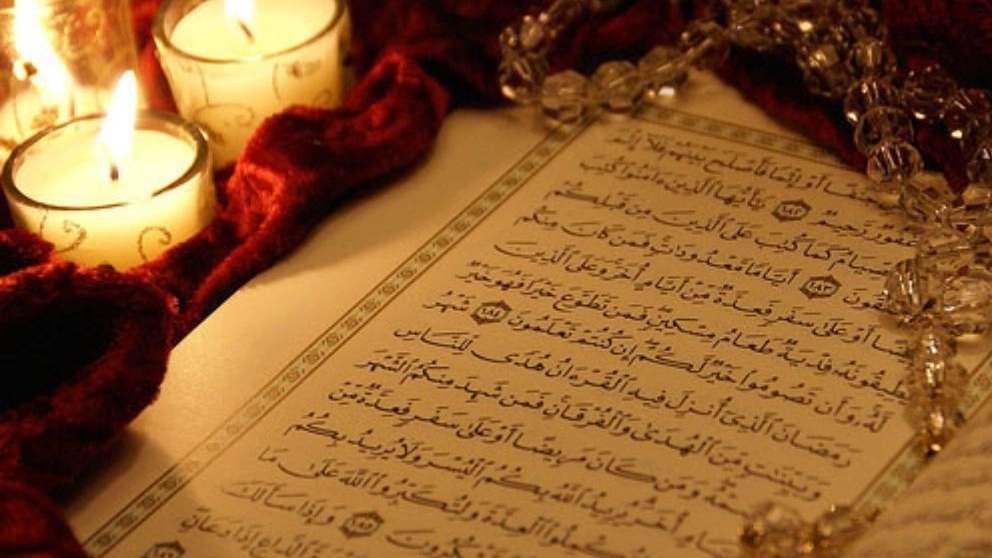 أَوْ إِثْمًا فَأَصْلَحَ بَيْنَهُمْ فَلَآ إِثْمَ
غَفُورٌ رَّحِيمٌ ١٨٢ يَٰٓأَيُّهَا ٱلَّذِينَ ءَامَنُوا۟ كُتِبَ
كَمَا كُتِبَ عَلَى ٱلَّذِينَ مِن قَبْلِكُمْ
١٨٣ أَيَّامًا مَّعْدُودَٰتٍ فَمَن كَانَ مِنكُم
أَوْ عَلَىٰ سَفَرٍ فَعِدَّةٌ مِّنْ أَيَّامٍ أُخَرَ وَعَلَى ٱلَّذِينَ
يُطِيقُونَهُۥ فِدْيَةٌ طَعَامُ مِسْكِينٍ فَمَن تَطَوَّعَ خَيْرًا فَهُوَ خَيْرٌ
لَّهُۥ وَأَن تَصُومُوا۟ خَيْرٌ لَّكُمْ إِن كُنتُمْ تَعْلَمُونَ ١٨٤ شَهْرُ
رَمَضَانَ ٱلَّذِىٓ أُنزِلَ فِيهِ ٱلْقُرْءَانُ هُدًى لِّلنَّاسِ
وَبَيِّنَٰتٍ مِّنَ ٱلْهُدَىٰ وَٱلْفُرْقَانِ فَمَن شَهِدَ مِنكُمُ ٱلشَّهْرَ
وَمَن كَانَ مَرِيضًا أَوْ عَلَىٰ سَفَرٍ فَعِدَّةٌ مِّنْ
أُخَرَ يُرِيدُ ٱللَّهُ بِكُمُ ٱلْيُسْرَ وَلَا يُرِيدُ بِكُمُ
وَلِتُكْمِلُوا۟ ٱلْعِدَّةَ وَلِتُكَبِّرُوا۟ ٱللَّهَ عَلَىٰ مَا
تَشْكُرُونَ ١٨٥ وَإِذَا سَأَلَكَ
ٱلدَّاعِ إِذَا دَعَانِ